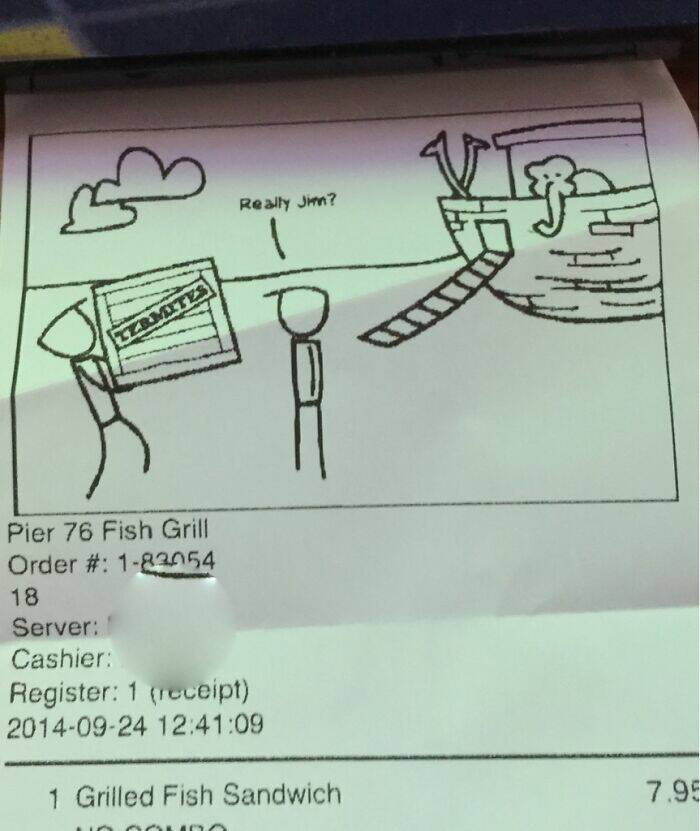 Really Jim?
TERMITES
Pier 76 Fish Grill
Order #: 1-83054
18
Server:
Cashier:
Register: 1 (receipt)
2014-09-24 12:41:09
1 Grilled Fish Sandwich 7.95
NO COMBO